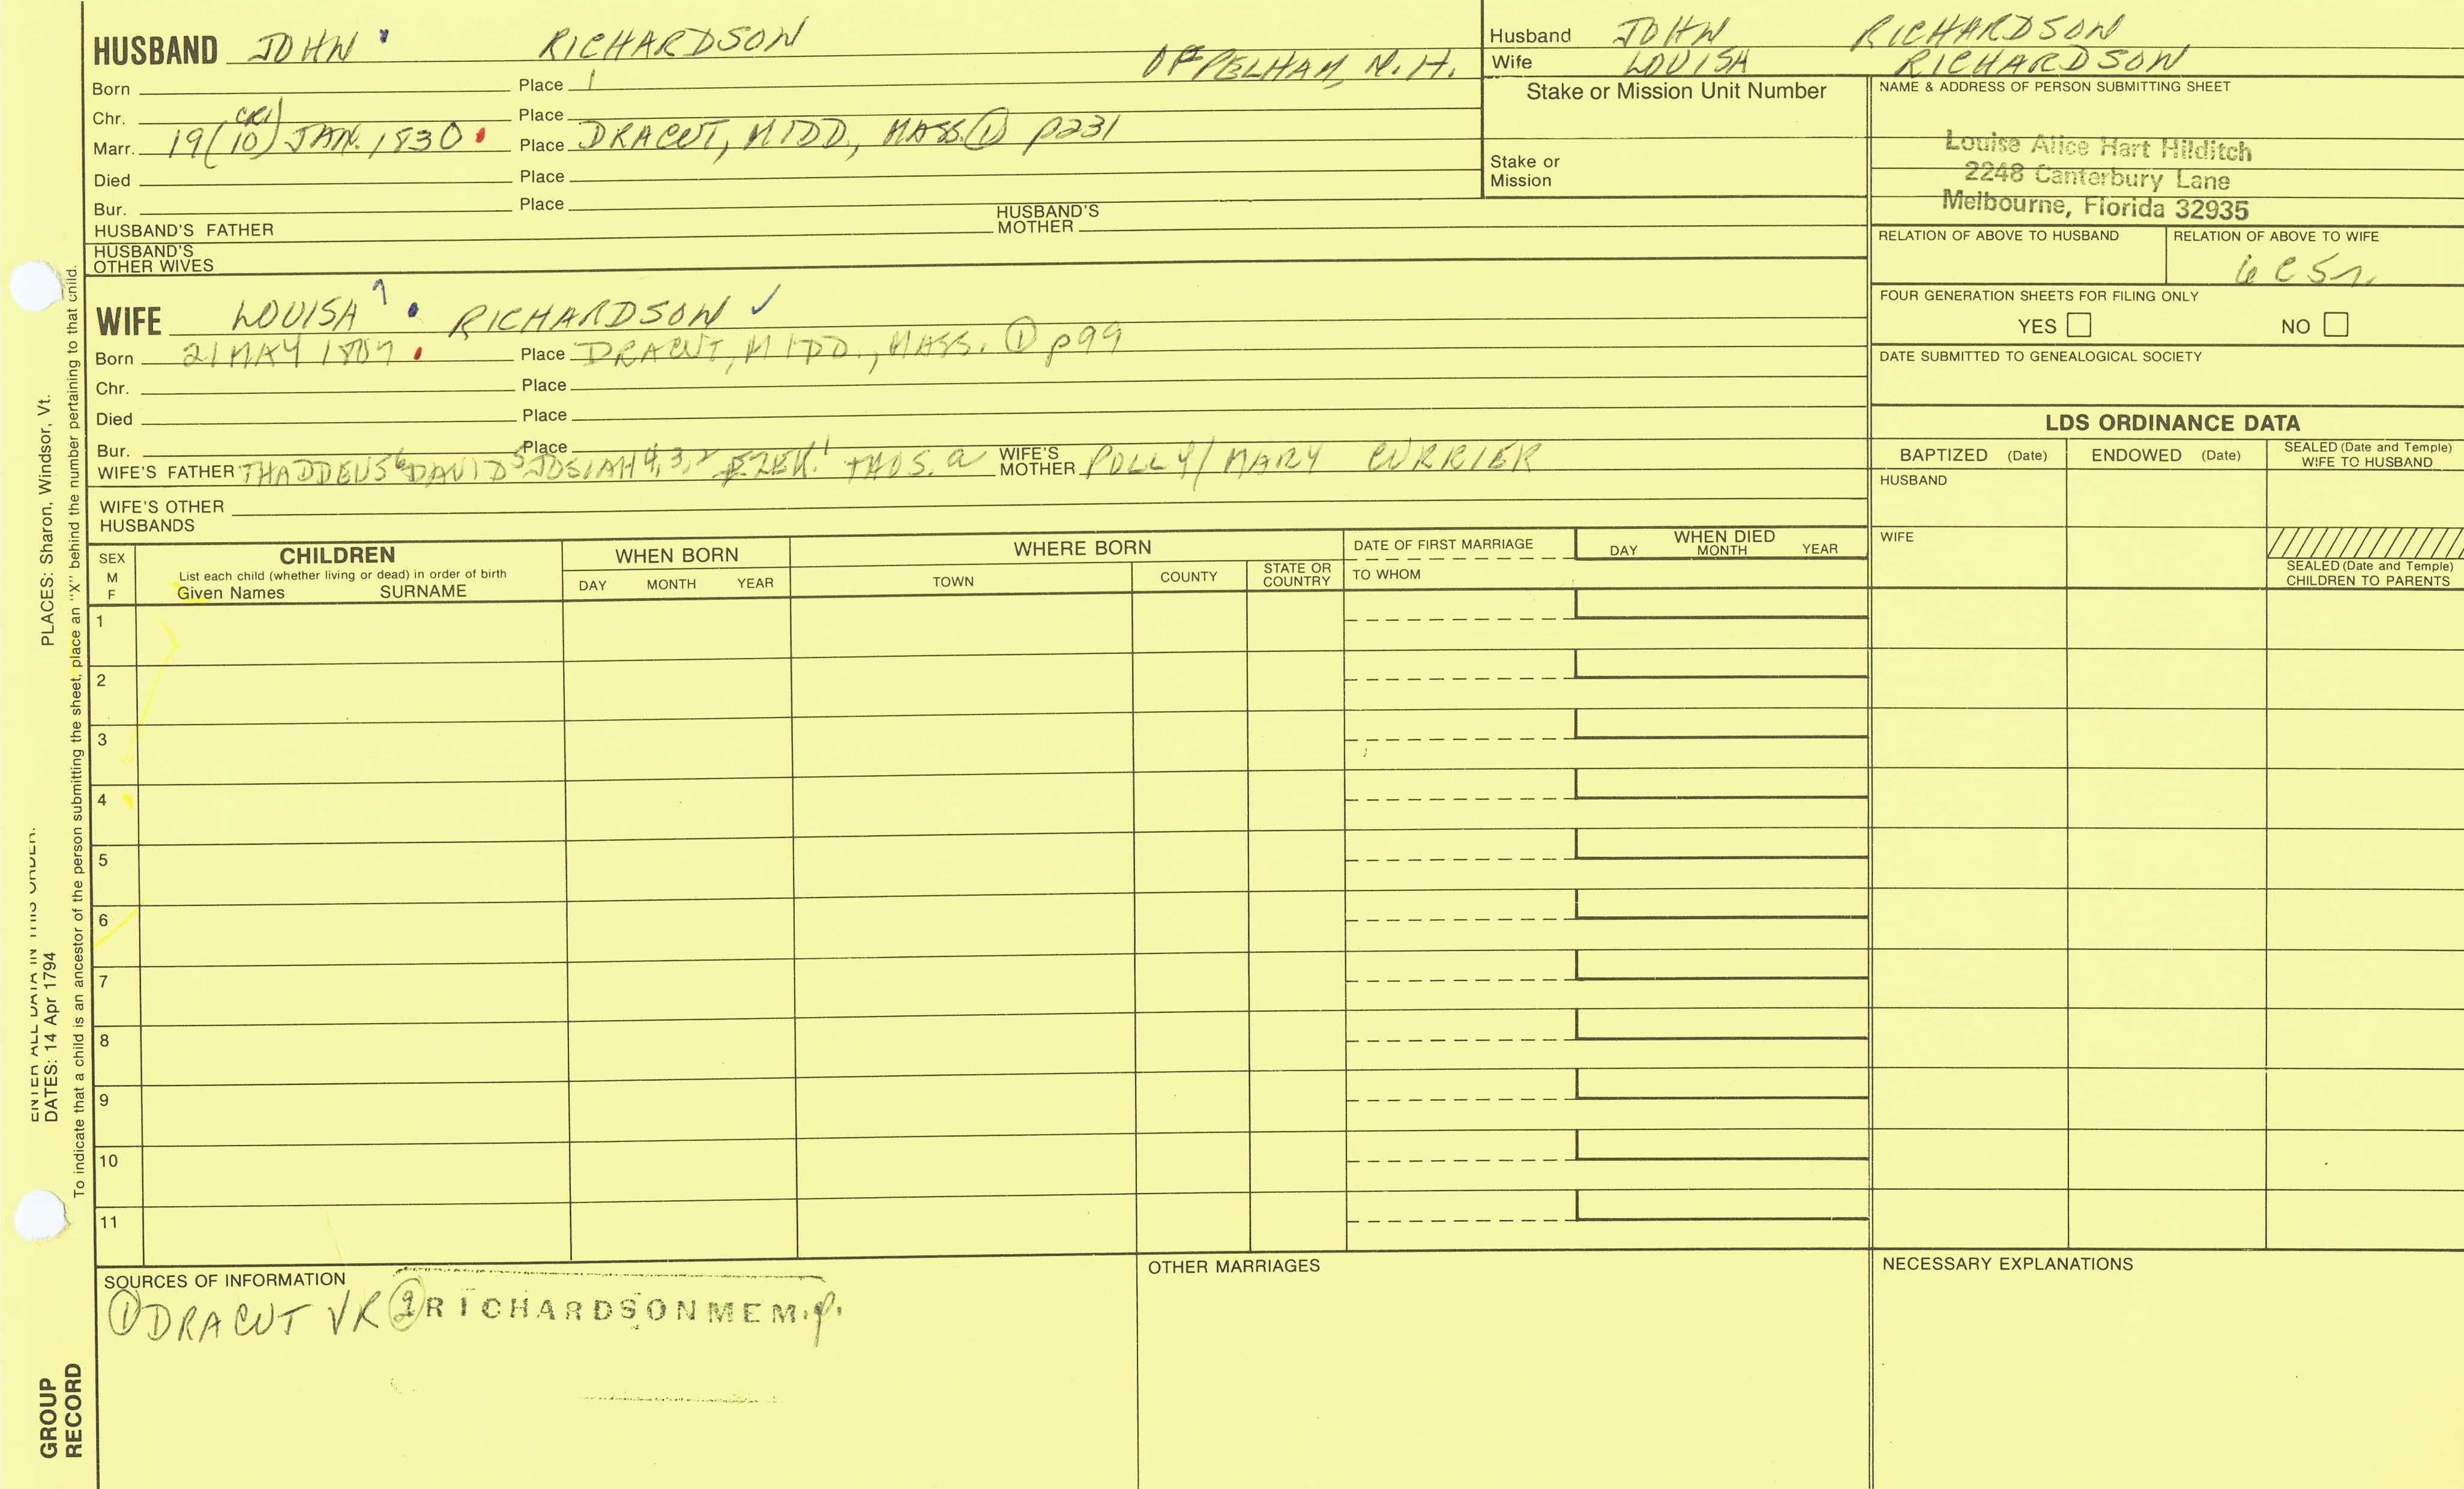 HUSBAND JOHN RICHARDSON OF PELHAM, N.H.
Born Place
Chr. Place
Marr. 19(10) JAN. 1830 Place DRACUT, MIDD., MASS. ① p231
Died Place
Bur. Place
HUSBAND'S FATHER HUSBAND'S MOTHER
HUSBAND'S OTHER WIVES
Husband JOHN RICHARDSON
Wife LOUISA RICHARDSON
Stake or Mission Unit Number
Stake or Mission
NAME & ADDRESS OF PERSON SUBMITTING SHEET
Louise Alice Hart Hilditch
2248 Canterbury Lane
Melbourne, Florida 32935
RELATION OF ABOVE TO HUSBAND RELATION OF ABOVE TO WIFE
6C5r.
FOUR GENERATION SHEETS FOR FILING ONLY
YES NO
DATE SUBMITTED TO GENEALOGICAL SOCIETY
WIFE LOUISA 7 RICHARDSON ✓
Born 21 MAY 1807 Place DRACUT, MIDD., MASS. ① p99
Chr. Place
Died Place
Bur. Place
WIFE'S FATHER THADDEUS 6 DAVID 5 JOSIAH 4,3,2 EZEK. 1 THOS. a WIFE'S MOTHER POLLY/MARY CURRIER
WIFE'S OTHER HUSBANDS
LDS ORDINANCE DATA
BAPTIZED (Date) ENDOWED (Date) SEALED (Date and Temple) WIFE TO HUSBAND
HUSBAND
WIFE
SEALED (Date and Temple) CHILDREN TO PARENTS
SEX M F
CHILDREN
List each child (whether living or dead) in order of birth
Given Names SURNAME
WHEN BORN
DAY MONTH YEAR
WHERE BORN
TOWN COUNTY STATE OR COUNTRY
DATE OF FIRST MARRIAGE
TO WHOM
WHEN DIED
DAY MONTH YEAR
1
2
3
4
5
6
7
8
9
10
11
SOURCES OF INFORMATION
① DRACUT VR ② RICHARDSON MEM. p.
OTHER MARRIAGES
NECESSARY EXPLANATIONS
PLACES: Sharon, Windsor, Vt.
ENTER ALL DATA IN THIS ORDER:
DATES: 14 Apr 1794
To indicate that a child is an ancestor of the person submitting the sheet, place an "X" behind the number pertaining to that child.
GROUP
RECORD